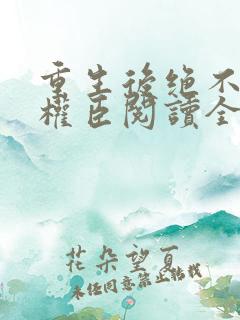 重生後絕不
權臣閱讀全
花朵望夏
未经同意禁止转载